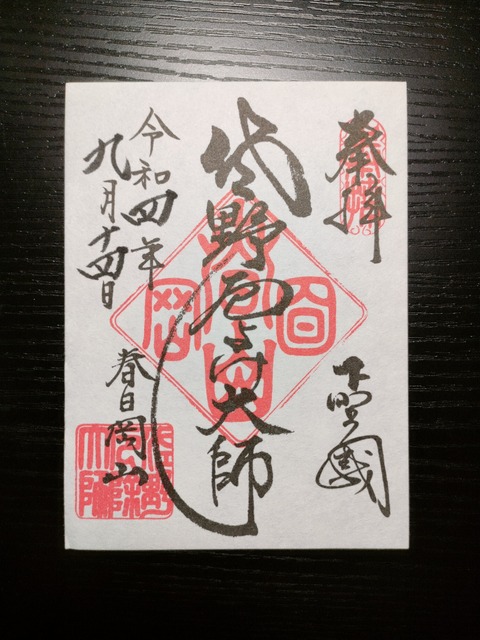 奉拝
下野國
佐野厄よけ大師
令和四年
九月十四日
春日岡山